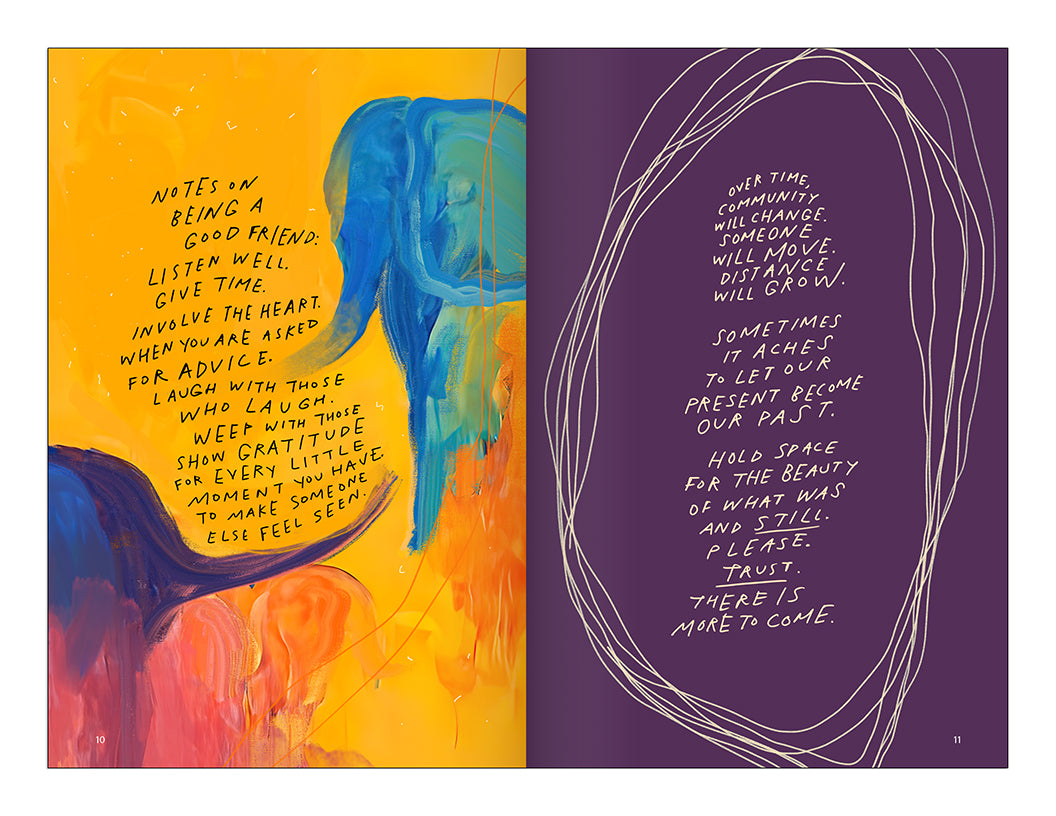 NOTES ON
BEING A
GOOD FRIEND:
LISTEN WELL.
GIVE TIME.
INVOLVE THE HEART.
WHEN YOU ARE ASKED
FOR ADVICE.
LAUGH WITH THOSE
WHO LAUGH.
WEEP WITH THOSE
SHOW GRATITUDE
FOR EVERY LITTLE
MOMENT YOU HAVE
TO MAKE SOMEONE
ELSE FEEL SEEN.
10
OVER TIME,
COMMUNITY
WILL CHANGE.
SOMEONE
WILL MOVE.
DISTANCE
WILL GROW.
SOMETIMES
IT ACHES
TO LET OUR
PRESENT BECOME
OUR PAST.
HOLD SPACE
FOR THE BEAUTY
OF WHAT WAS
AND STILL.
PLEASE.
TRUST.
THERE IS
MORE TO COME.
11